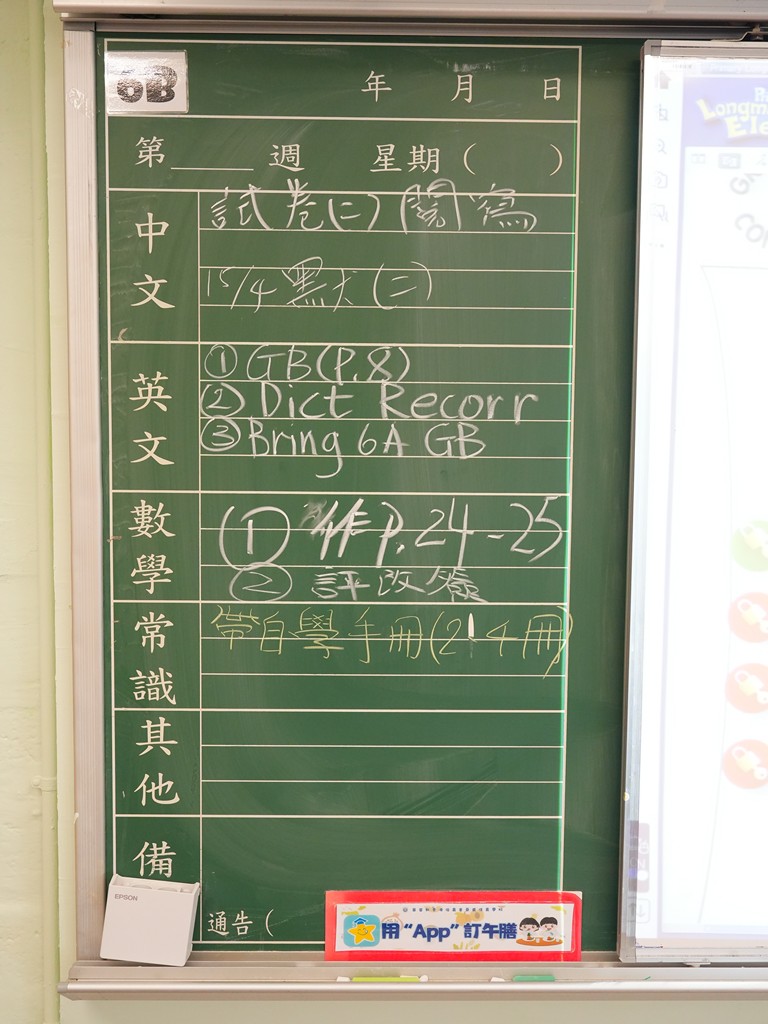 6B
年 月 日
第____週 星期( )
中文
試卷(二) 閱寫
15/4 默犬(二)
英文
① GB(P.8)
② Dict Recorr
③ Bring 6A GB
數學
① 作P.24-25
② 評改簽
常識
帶自學手冊(2 4冊)
其他
備
通告(
EPSON
用“App”訂午膳
Longm
Ele